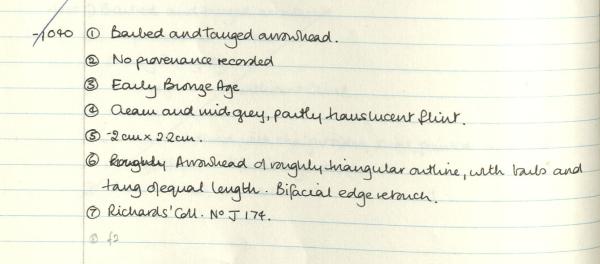 -1040 ① Barbed and tanged arrowhead.
② No provenance recorded
③ Early Bronze Age
④ Cream and mid-grey, partly translucent flint.
⑤ -2cm x 2.2cm.
⑥ Roughly Arrowhead of roughly triangular outline, with barbs and
tang of equal length. Bifacial edge retouch.
⑦ Richards' Coll. No J 174.
⑧ f2